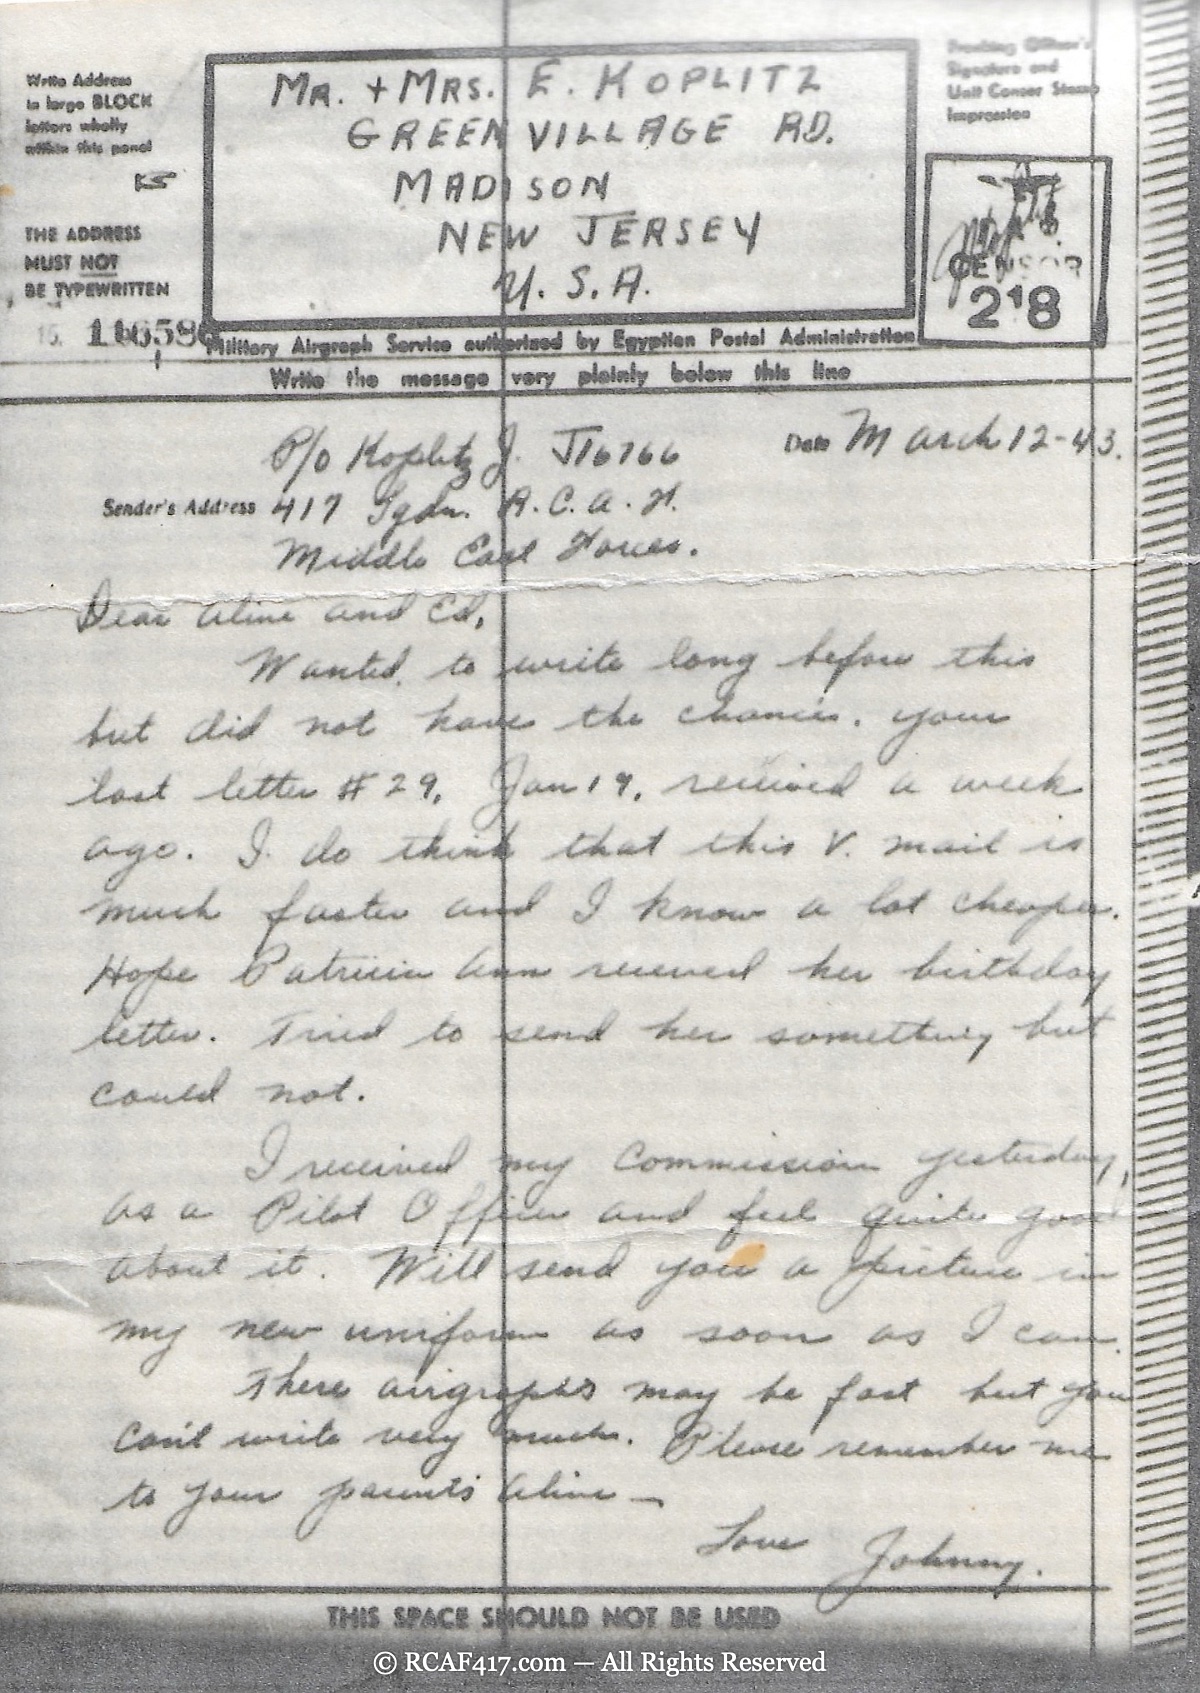 Write Address
in large BLOCK
letters wholly
within this panel
KS
THE ADDRESS
MUST NOT
BE TYPEWRITTEN
15.
MR. + MRS. E. KOPLITZ
GREEN VILLAGE RD.
MADISON
NEW JERSEY
U. S. A.
Signature and
Unit Censor Stamp
Impression
CENSOR
218
Military Airgraph Service authorized by Egyptian Postal Administration
Write the message very plainly below this line
Date March 12-43.
P/O Koplitz J. J16766
Sender's Address 417 Sqdn. R.C.A.F.
Middle East Forces.
Dear Aline and Ed,
Wanted to write long before this
but did not have the chance. your
last letter #29, Jan 19, received a week
ago. I do think that this V. mail is
much faster and I know a lot cheaper.
Hope Patricia Ann received her birthday
letter. Tried to send her something but
could not.
I received my commission yesterday,
as a Pilot Officer and feel quite good
about it. Will send you a picture in
my new uniform as soon as I can.
These airgraphs may be fast but you
can't write very much. Please remember me
to your parents Aline —
Love Johnny.
THIS SPACE SHOULD NOT BE USED
© RCAF417.com — All Rights Reserved